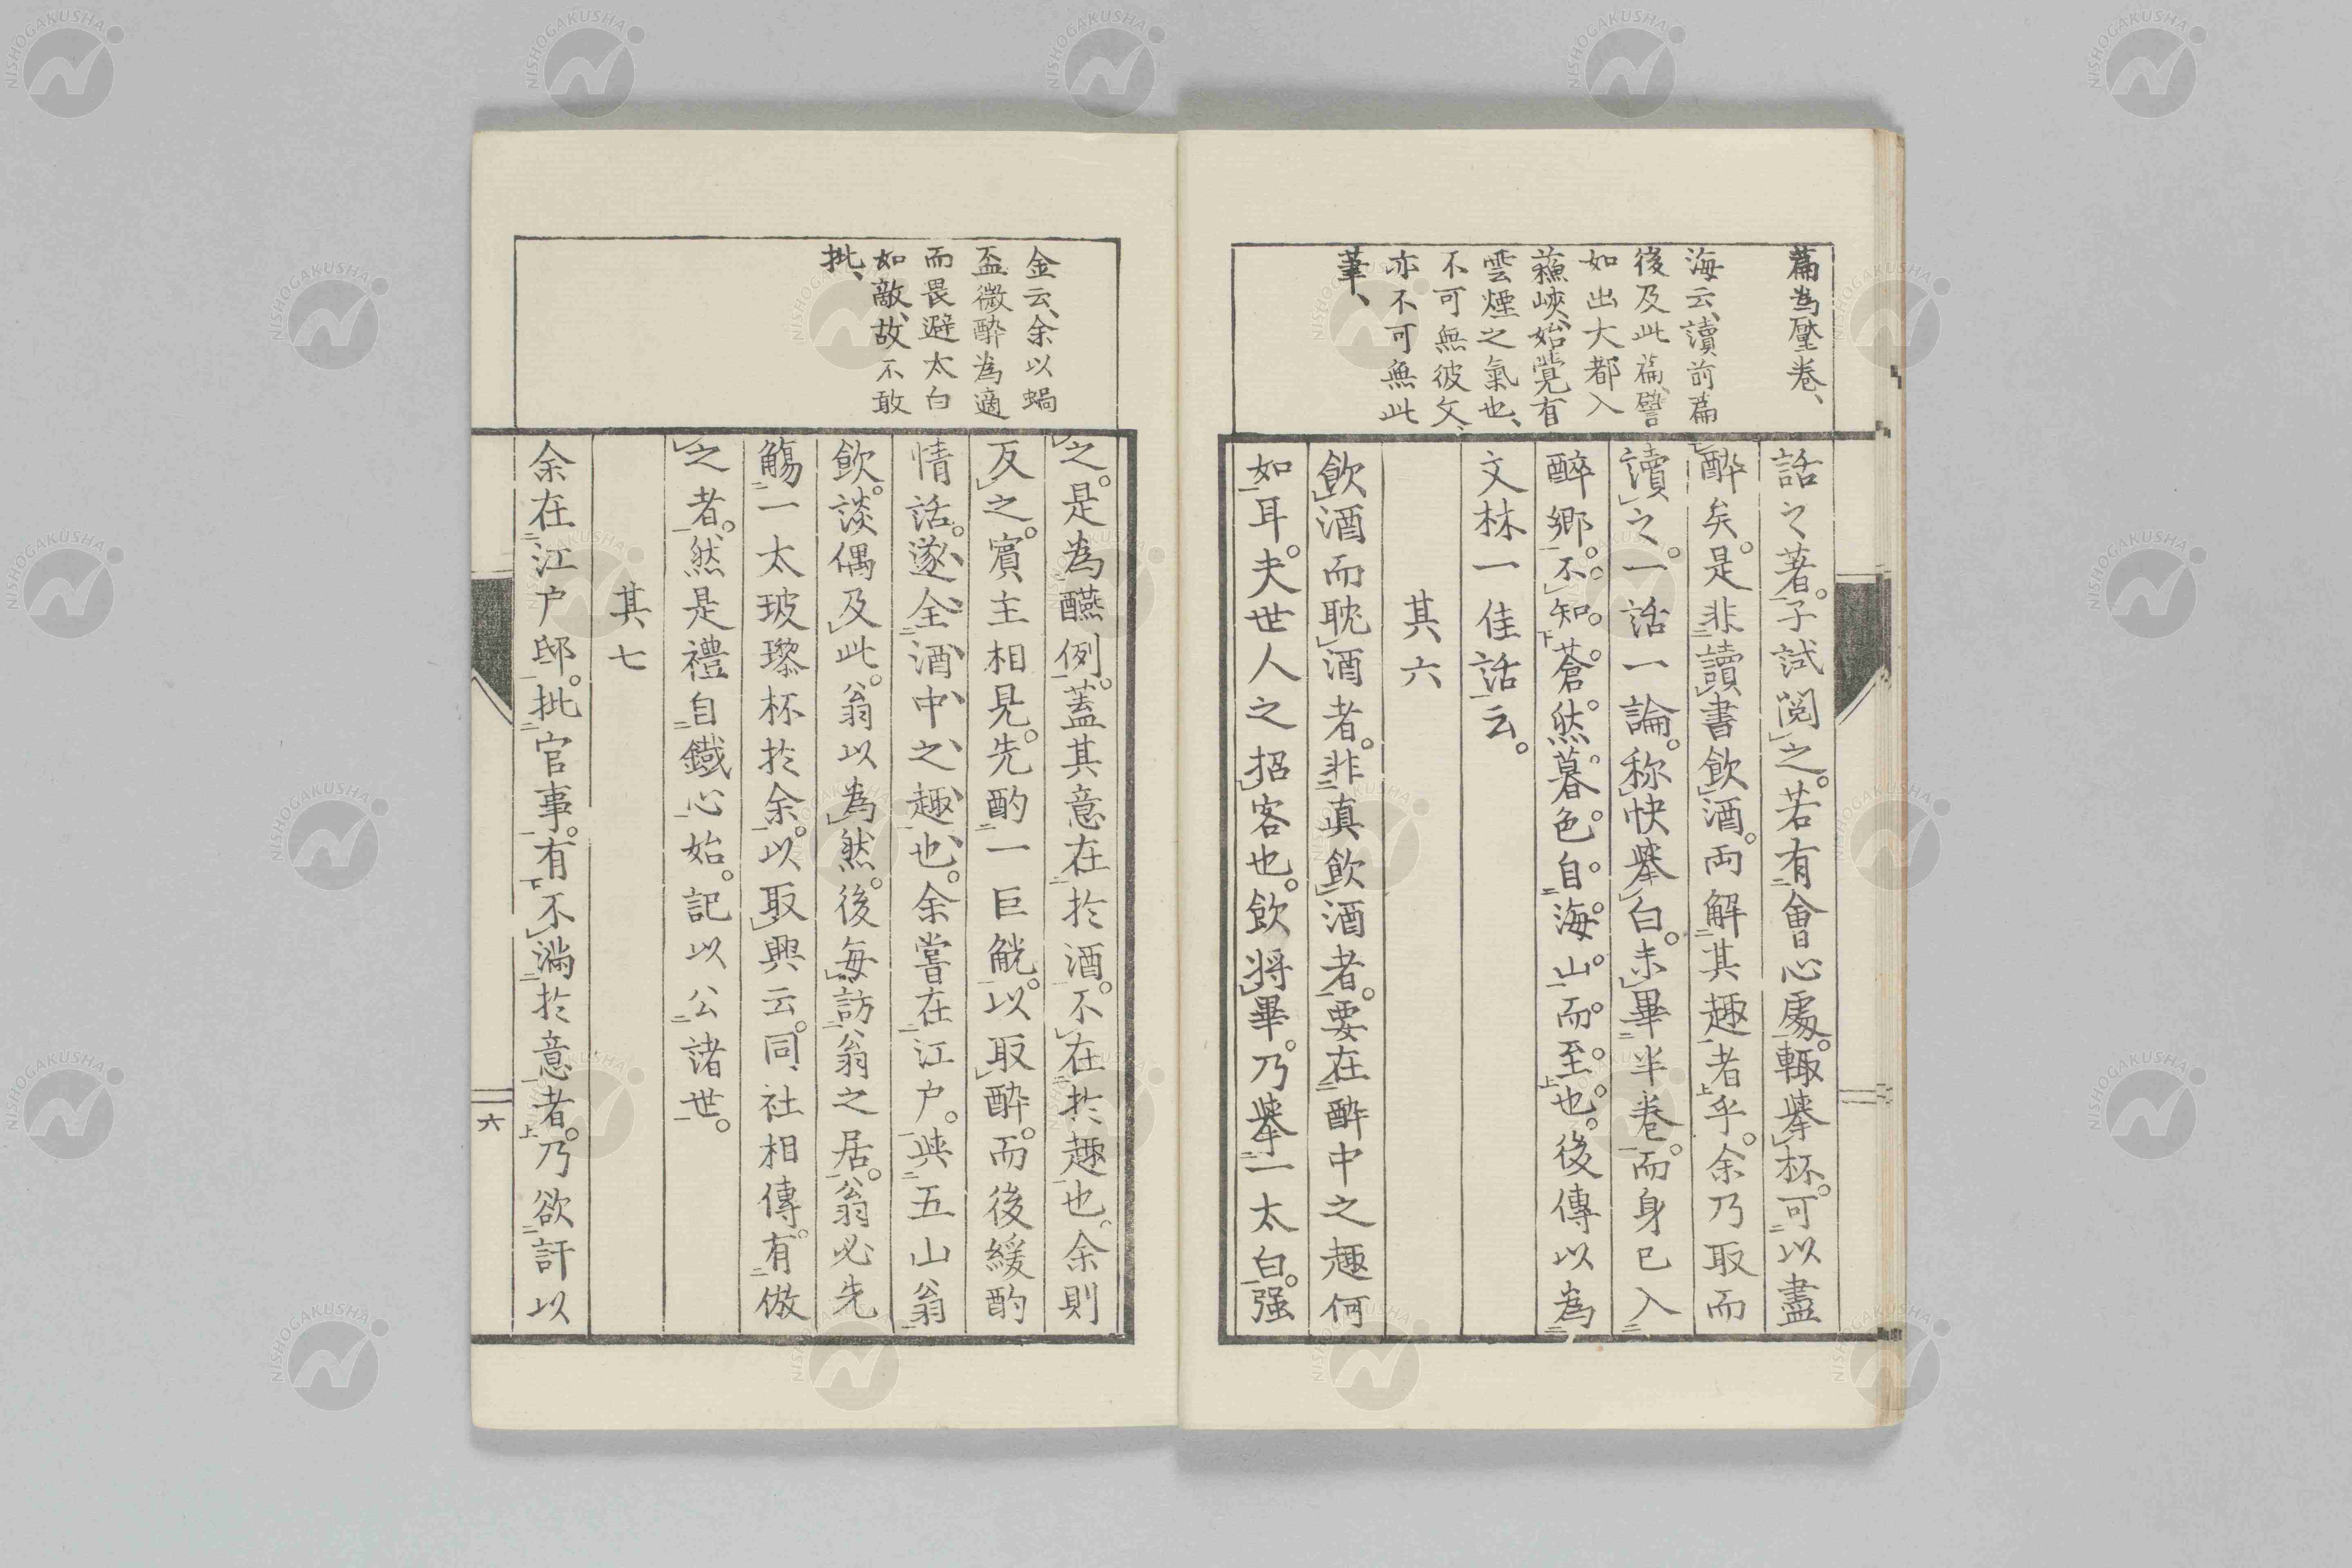 篇為壓卷、
海云、讀前篇
後及此篇、譬
如出大都入
蘓峽、始覺有
雲煙之氣也、
不可無彼文、
亦不可無此
筆、
話之著。子試閲之。若有會心處。輙擧杯。可以盡
酔矣。是非讀書飲酒。両解其趣者乎。余乃取而
讀之。一話一論。称快擧白。未畢半巻。而身已入
醉郷。不知蒼然暮色自海山而至也。後傳以為
文林一佳話云。
其六
飲酒而耽酒者。非真飲酒者。要在酔中之趣何
如耳。夫世人之招客也。飲將畢。乃擧一太白。强
金云、余以蝸
盃微酔為適
而畏避太白
如敵、故不敢
批、
之。是為醼例。蓋其意在於酒。不在於趣也。余則
反之。賓主相見。先酌一巨觥。以取酔。而後緩酌
情話。遂全酒中之趣也。余嘗在江户。與五山翁
飲。談偶及此。翁以為然。後每訪翁之居。翁必先
觴一太玻瓈杯於余。以取興云。同社相傳。有倣
之者。然是禮自鐵心始。記以公諸世。
其七
余在江户邸。批官事。有不滿於意者。乃欲訐以
六
NISHOGAKUSHA